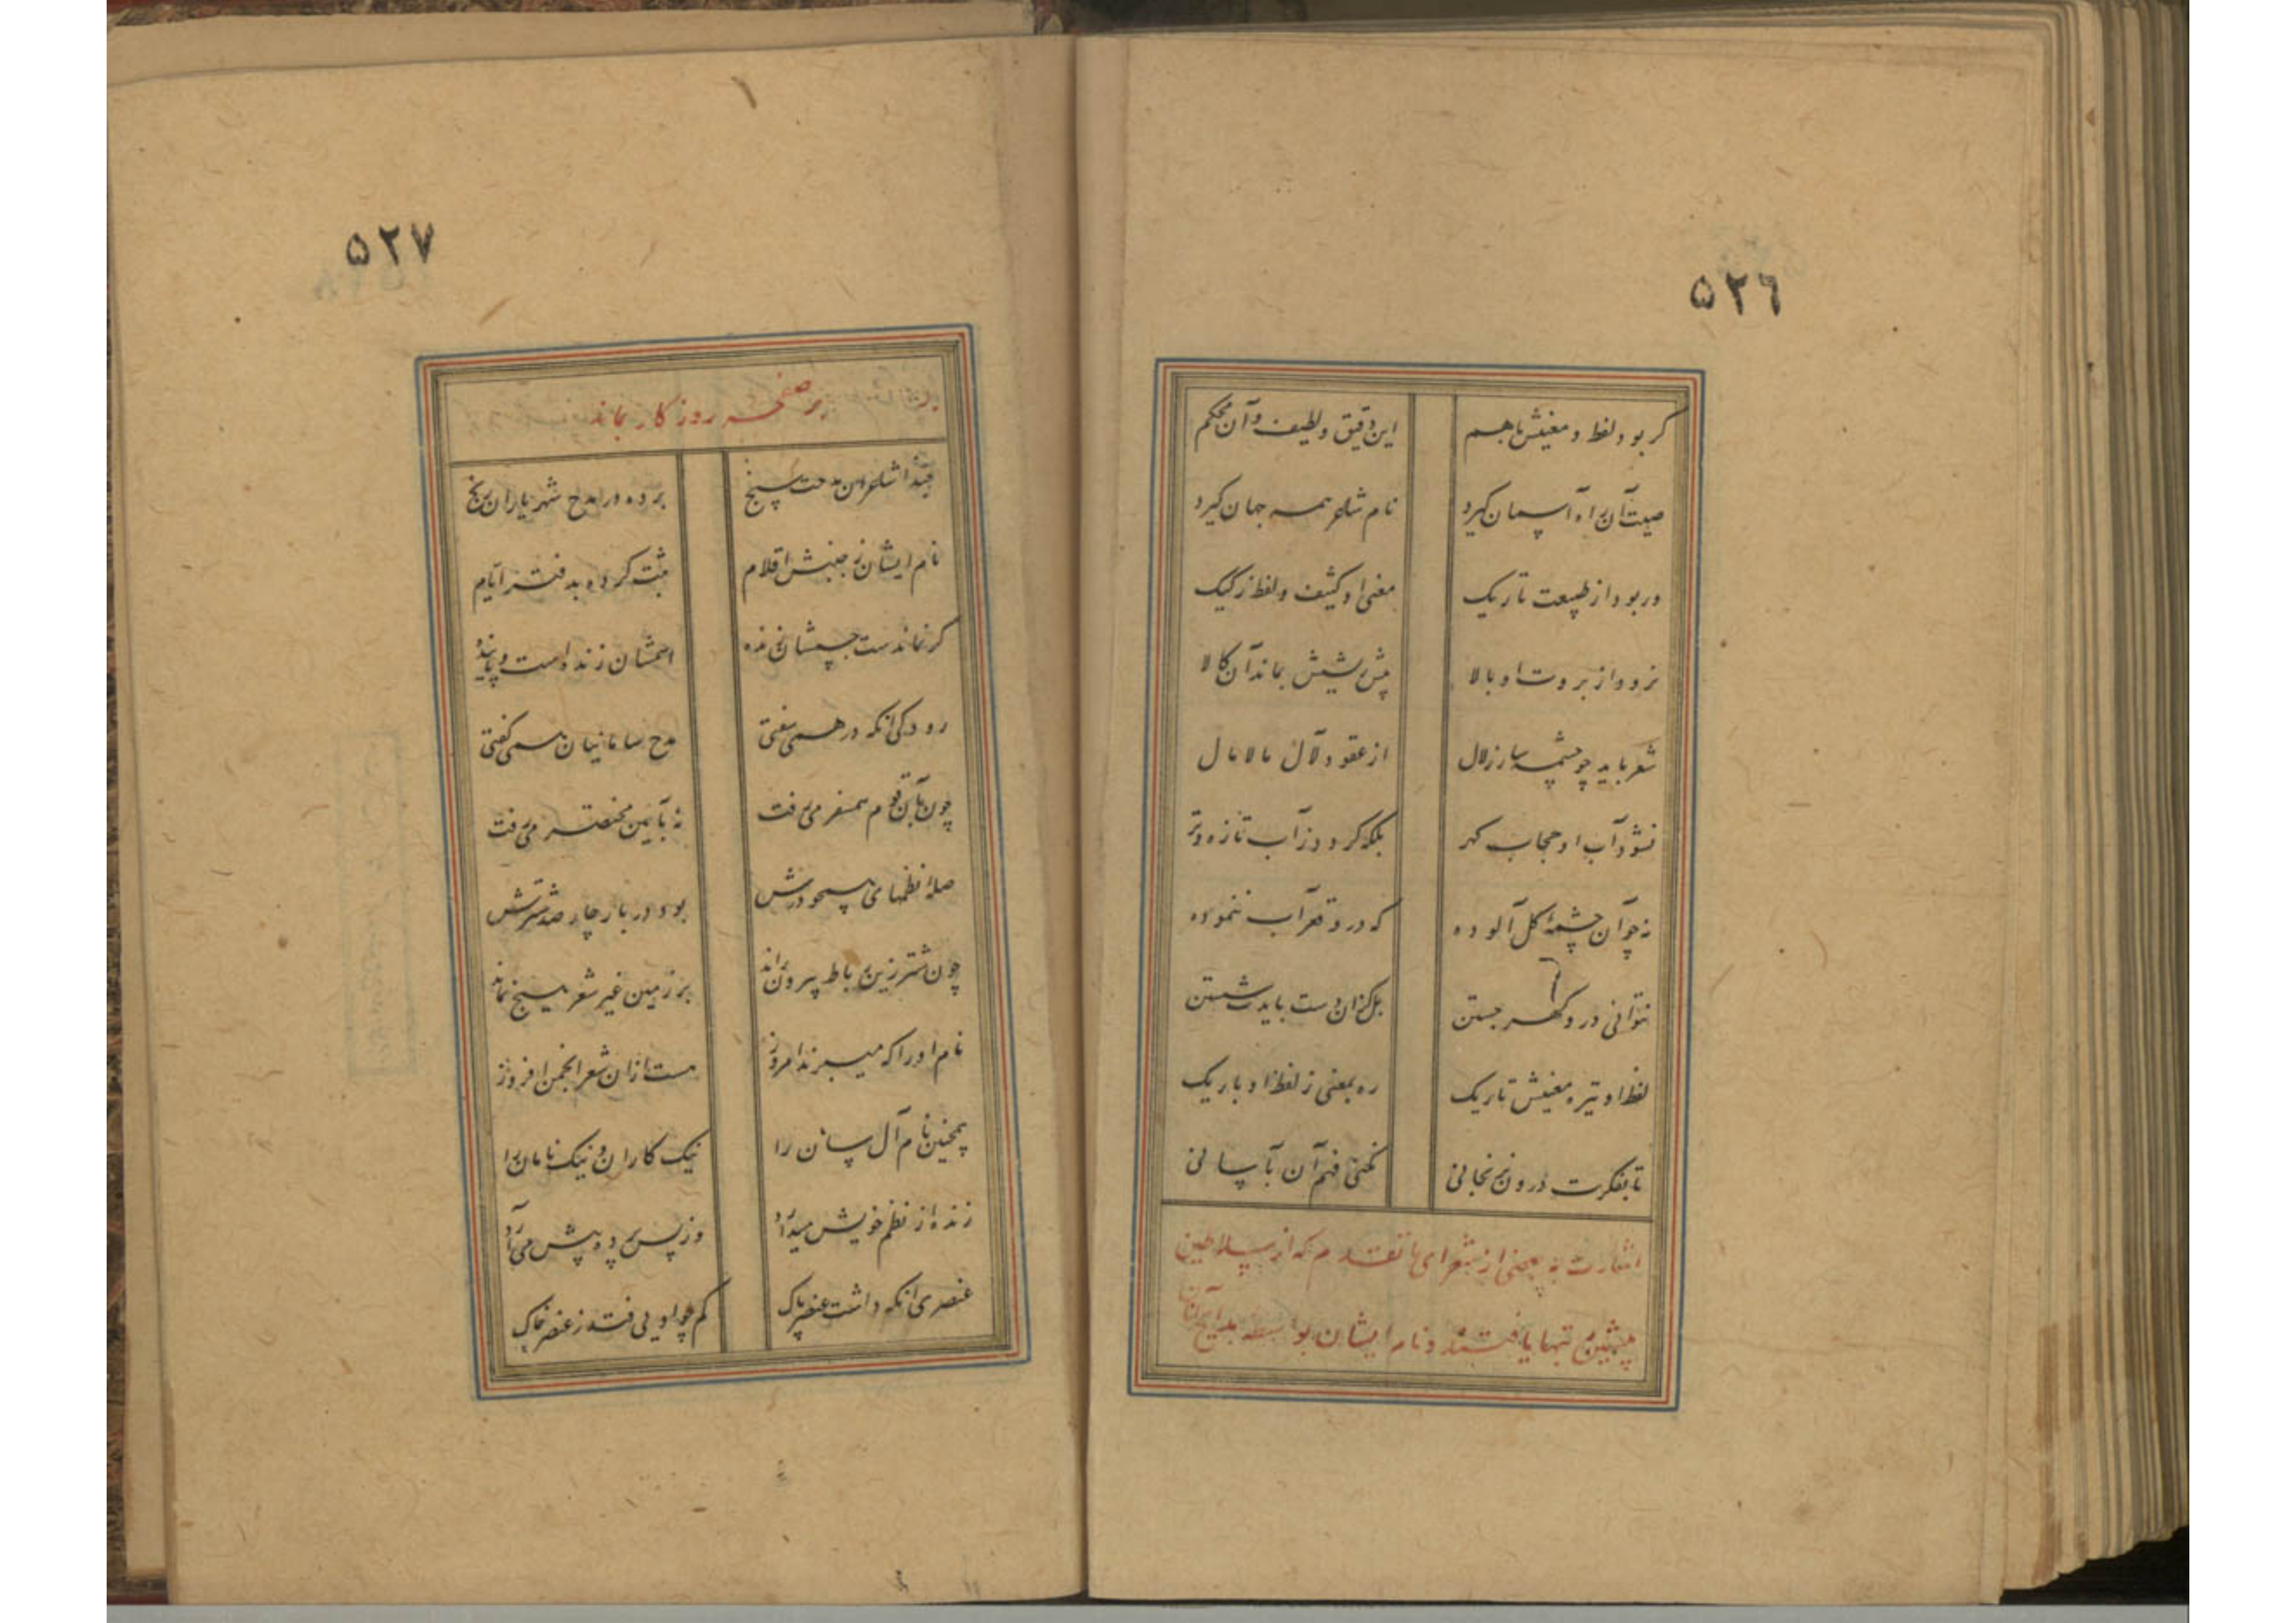 ۵۲۶
گر بود لفظ و معنیش با هم این دقیق و لطیف و آن محکم
صیت آن راه آسمان گیرد نام شاعر همه جهان گیرد
ور بود از طبیعت تاریک معنی او کثیف و لفظ رکیک
نرود از بروت او بالا پیش ریشش بماند آن کالا
شعر باید چو چشمه سار زلال از عقود لآل مالامال
نشود آب او حجاب گهر بلکه گردد ز آب تازه و تر
نه چو آن چشمهٔ گل آلوده که درو قعر آب ننموده
نتوانی درو گهر جستن بل کزان دست بایدت شستن
لفظ او تیره معنیش تاریک ره بمعنی ز لفظ او باریک
تا بفکرت درون نرنجانی نکنی فهم آن بآسانی
اشارت به بعضی از شعرای ما تقدم که از سلاطین
پیشین تربیتها یافتند و نام ایشان بواسطه مدایح آنان
۵۲۷
بر صفحه روزگار بماند
حبذا شاعران مدحت سنج برده در مدح شهریاران رنج
نام ایشان ز جنبش اقلام ثبت کرده به دفتر ایام
گر نماندست جسمشان زنده اسمشان زنده است و پاینده
رودکی آنکه در همی سفتی مدح سامانیان همی گفتی
چون بآن قوم همسفر می رفت نه بآیین مختصر می رفت
صلهٔ نظمهای همچو درش بود در بار چارصد شترش
چون شتر زین رباط بیرون راند بر زمین غیر شعر هیچ نماند
نام او را که میبرند امروز هست ازان شعر انجمن افروز
همچنین نام آل سامان را نیک کاران و نیک نامان را
زنده از نظم خویش میدارد وز پس پرده پیش می آرد
عنصری آنکه داشت عنصر پاک کم چو اویی فتد ز عنصر خاک